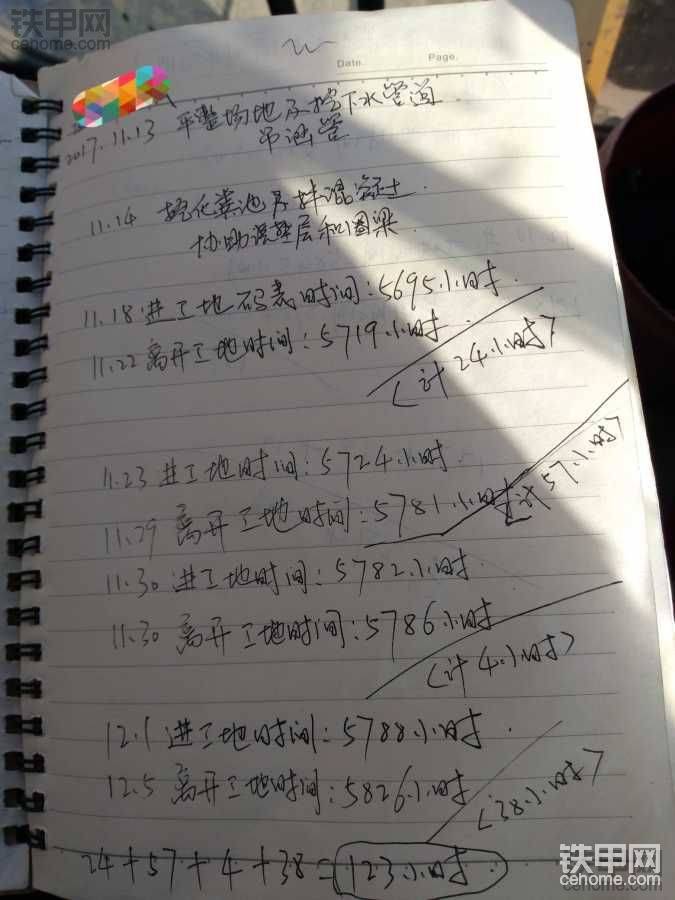 铁甲网
cehome.com
Date.
Page.
2017.11.13 平整场地及挖下水管道
吊涵管
11.14 挖化粪池及拌混凝土
协助浇垫层和圈梁
11.18 进工地码表时间:5695小时.
11.22 离开工地时间:5719小时.
(计24小时)
11.23 进工地时间:5724小时.
11.29 离开工地时间:5781小时
(计57小时)
11.30 进工地时间:5782小时.
11.30 离开工地时间:5786小时
(计4小时)
12.1 进工地时间:5788小时.
12.5 离开工地时间:5826小时
(38小时)
24+57+4+38=123小时.
铁甲网
cehome.com